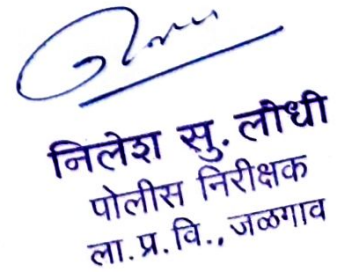 निलेश सु. लोधी
पोलीस निरीक्षक
ला. प्र. वि., जळगाव